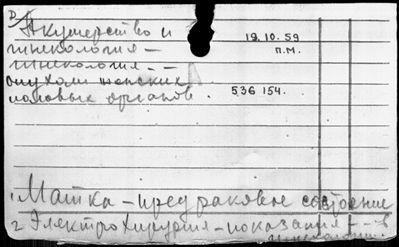 D
Акушерство и
гинекология —
гинекология. —
опухоли женских
половых органов.
19.10.59
П.М.
536 154.
1. Матка – предраковое состояние
2 Электрохирургия – показания – в
гинекологии.